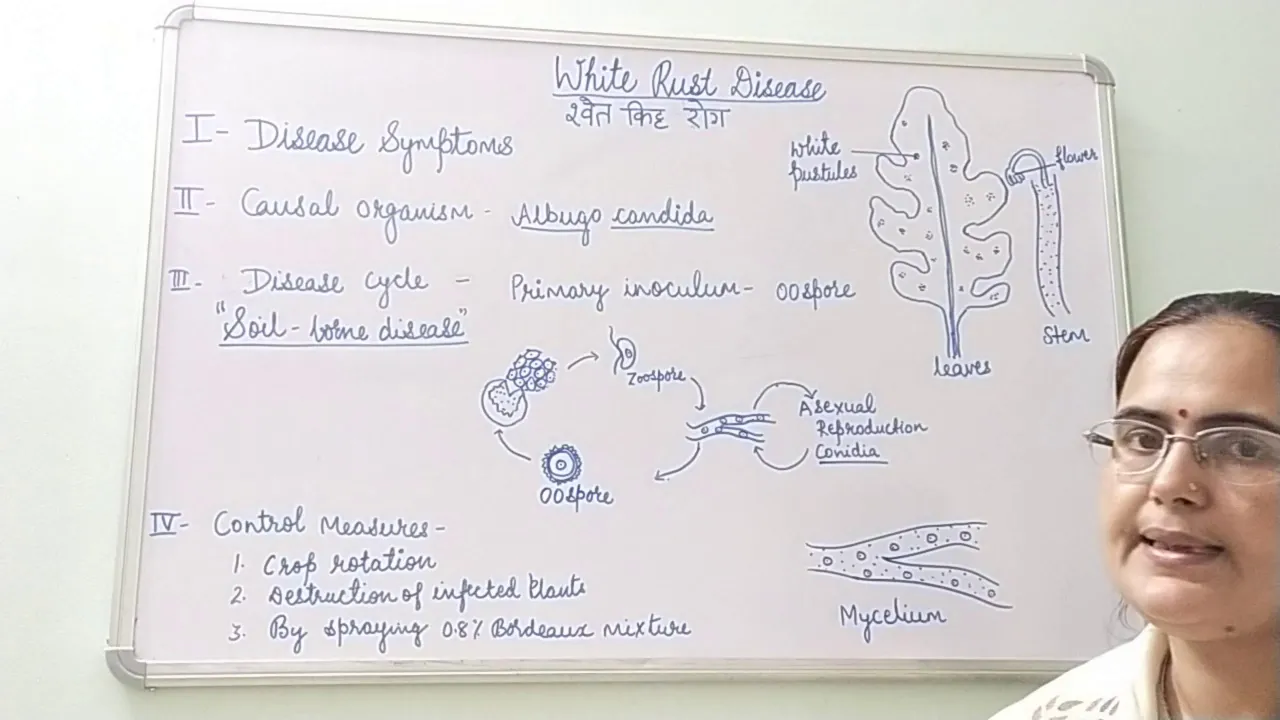 White Rust Disease
श्वेत किट्ट रोग
I- Disease Symptoms
II- Causal organism - Albugo candida
III- Disease cycle - Primary inoculum- Oospore
"Soil-borne disease"
White
pustules
flower
leaves
Stem
Zoospore
Asexual
Reproduction
Conidia
Oospore
IV- Control Measures-
1. Crop rotation
2. Destruction of infected Plants
3. By spraying 0.8% Bordeaux mixture
Mycelium